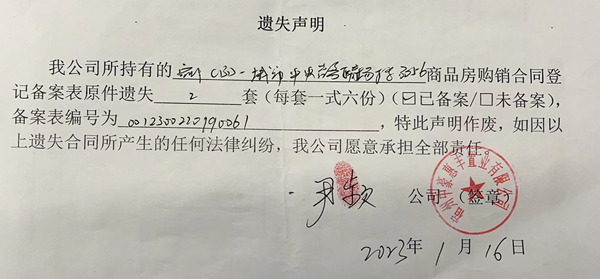 遗失声明
我公司所持有的宿州(国)-城市中央 3056商品房购销合同登
记备案表原件遗失 2 套（每套一式六份）（☑已备案/□未备案），
备案表编号为 0012300220190061 ，特此声明作废，如因以
上遗失合同所产生的任何法律纠纷，我公司愿意承担全部责任。
公司（签章）
宿州市豪惠丰置业有限公司
2023年1月16日